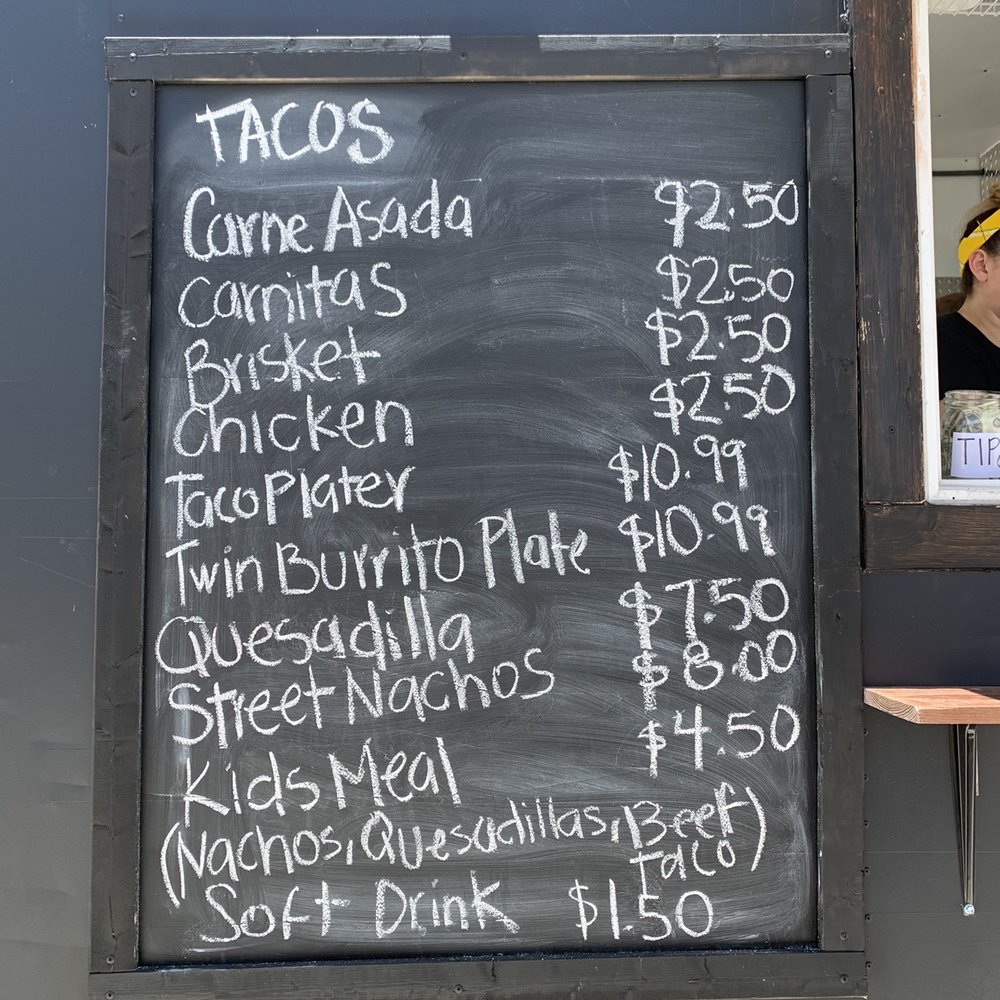 TACOS
Carne Asada $2.50
Carnitas $2.50
Brisket $2.50
Chicken $2.50
Taco Plater $10.99
Twin Burrito Plate $10.99
Quesadilla $7.50
Street Nachos $8.00
Kids Meal $4.50
(Nachos, Quesadillas, Beef
Taco)
Soft Drink $1.50
TIPS